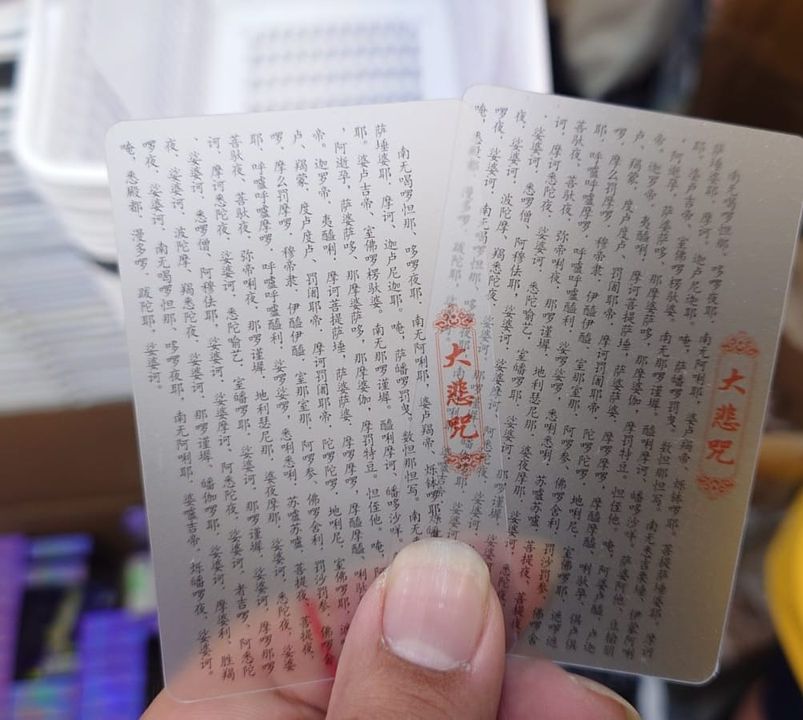 大悲咒
南无喝啰怛那、哆啰夜耶，南无阿唎耶，婆卢羯帝、烁钵啰耶、
萨埵婆耶。摩诃、迦卢尼迦耶。唵，萨皤啰罚曳。数怛那怛写。南无
耶。婆卢吉帝、室佛啰楞驮婆。南无那啰谨墀。醯唎摩诃、皤哆沙咩。
，阿逝孕，萨婆萨哆、那摩婆萨哆，那摩婆伽，摩罚特豆。怛侄他。唵，阿
帝。迦罗帝。夷醯唎。摩诃菩提萨埵，萨婆萨婆。摩啰摩啰，摩醯摩醯、唎驮孕
卢、羯蒙。度卢度卢、罚阇耶帝。摩诃罚阇耶帝。陀啰陀啰。地唎尼。室佛啰耶。
啰。摩么罚摩啰。穆帝隶。伊醯伊醯。室那室那。阿啰参、佛啰舍利。罚沙罚参。佛啰舍
耶。呼嚧呼嚧摩啰。呼嚧呼嚧醯利。娑啰娑啰，悉唎悉唎。苏嚧苏嚧。菩提夜、菩提夜。
菩驮夜、菩驮夜。弥帝唎夜。那啰谨墀。地利瑟尼那。婆夜摩那。娑婆诃。悉陀夜。娑婆
诃。摩诃悉陀夜。娑婆诃。悉陀喻艺。室皤啰耶。娑婆诃。那啰谨墀。娑婆诃。摩啰那啰
夜。娑婆诃。悉啰僧、阿穆佉耶，娑婆诃。娑婆摩诃、阿悉陀夜。娑婆诃。者吉啰、阿悉陀
夜。娑婆诃。波陀摩、羯悉陀夜。娑婆诃。那啰谨墀、皤伽啰耶。娑婆诃。摩婆利、胜羯
啰夜。娑婆诃。南无喝啰怛那、哆啰夜耶。南无阿唎耶、婆嚧吉帝、烁皤啰夜、娑婆诃。
唵，悉殿都、漫多啰、跋陀耶，娑婆诃。
大悲咒
南无喝啰怛那、哆啰夜耶，南无阿唎耶，婆卢羯帝、烁钵啰耶。菩提萨埵婆耶。摩诃
萨埵婆耶。摩诃、迦卢尼迦耶。唵，萨皤啰罚曳。数怛那怛写。南无悉吉栗埵、伊蒙阿唎
耶。婆卢吉帝、室佛啰楞驮婆。南无那啰谨墀。醯唎摩诃、皤哆沙咩。萨婆阿他、豆输朋
，阿逝孕，萨婆萨哆、那摩婆萨哆，那摩婆伽，摩罚特豆。怛侄他。唵，阿婆卢醯。卢迦
帝。迦罗帝。夷醯唎。摩诃菩提萨埵，萨婆萨婆。摩啰摩啰，摩醯摩醯、唎驮孕。俱卢俱
卢、羯蒙。度卢度卢、罚阇耶帝。摩诃罚阇耶帝。陀啰陀啰。地唎尼。室佛啰耶。遮啰遮
啰。摩么罚摩啰。穆帝隶。伊醯伊醯。室那室那。阿啰参、佛啰舍利。罚沙罚参。佛啰舍
耶。呼嚧呼嚧摩啰。呼嚧呼嚧醯利。娑啰娑啰，悉唎悉唎。苏嚧苏嚧。菩提夜、菩提夜。
菩驮夜、菩驮夜。弥帝唎夜。那啰谨墀。地利瑟尼那。婆夜摩那。娑婆诃。
诃。摩诃悉陀夜。娑婆诃。悉陀喻艺。室皤啰耶。娑婆诃。那啰谨墀。
夜。娑婆诃。悉啰僧、阿穆佉耶，娑婆诃。娑婆摩诃
夜。娑婆诃。波陀摩
啰夜。娑婆诃。南无喝啰怛那、哆
唵，悉殿都、漫多啰、跋陀耶，娑